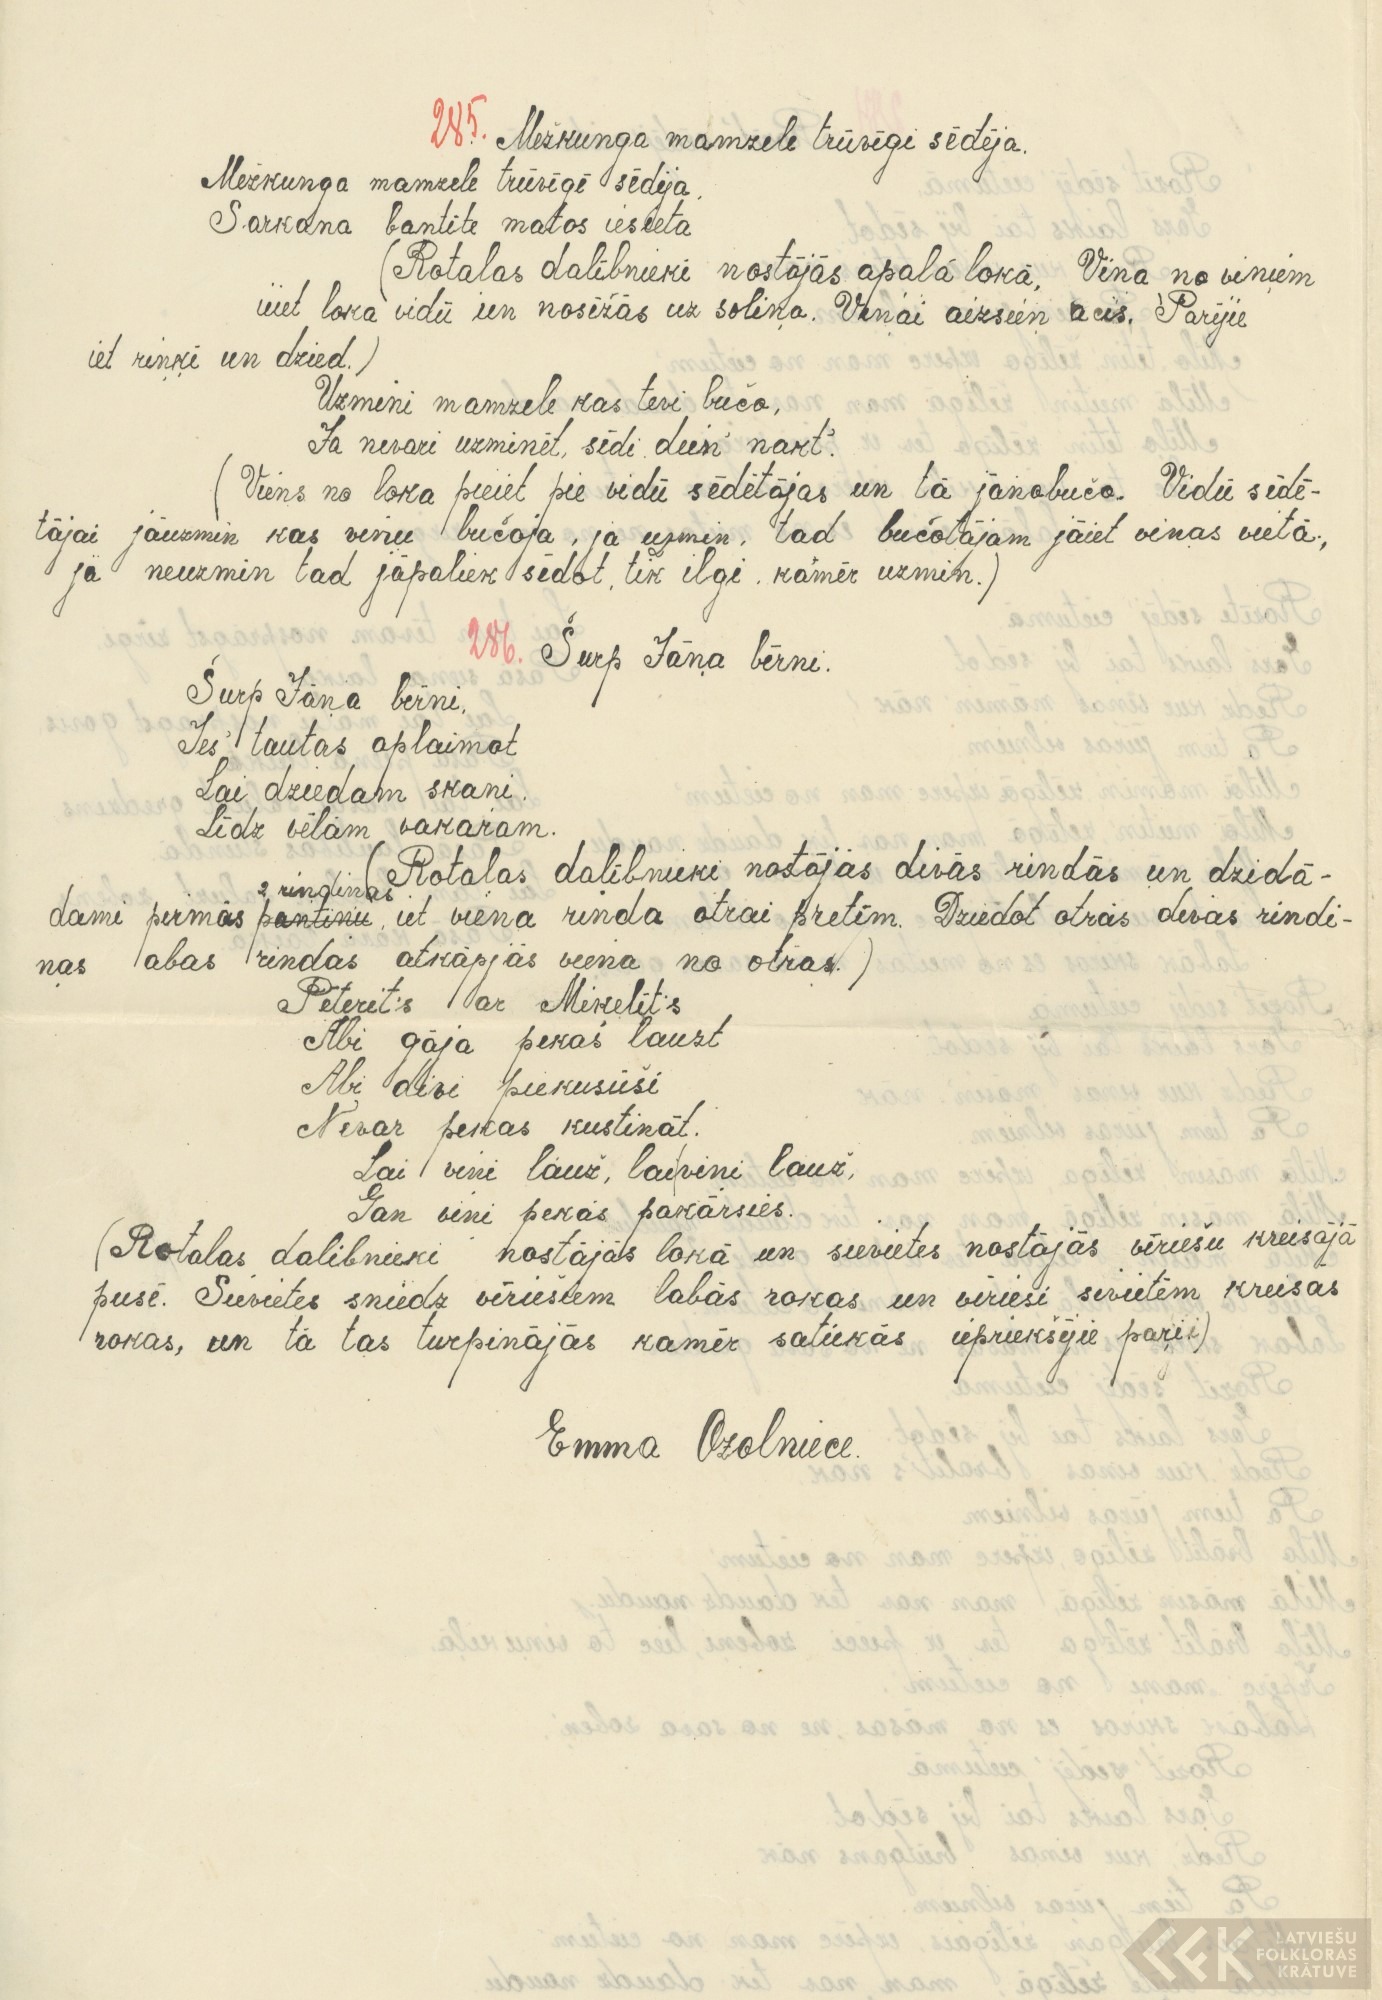 285. Mežkunga mamzele trūvīgi sēdēja.
Mežkunga mamzele trūvīgē sēdēja,
Sarkana bantīte matos iesieta
(Rotaļas dalībnieki nostājās apaļā lokā, Viņa no viņiem
iiet loka vidū un nosēžās uz soliņa. Viņai aizsien acis. Pārējie
iet riņķī un dzied.)
Uzmini mamzele kas tevi bučo,
Ja nevari uzminēt, sēdi dien' nakt'.
(Viens no loka pieiet pie vidū sēdētājas un tā jānobučo. Vidū sēdē-
tājai jāuzmin kas viņu bučoja, ja uzmin, tad bučotājam jāiet viņas vietā,
ja neuzmin tad jāpaliek sēdot, tik ilgi, kamēr uzmin.)
286. Šurp Jāņa bērni.
Šurp Jāņa bērni,
Ies' tautas aplaimot
Lai dziedam skani.
Līdz vēlam vakaram.
(Rotaļas dalībnieki nostājās divās rindās un dzidā-
2 rindiņas
dami pirmās pantiņu, iet viena rinda otrai pretīm. Dziedot otrās divas rindi-
ņas abas rindas atkāpjās viena no otras.)
Pēterīt's ar Miķelīt's
Abi gāja pekas lauzt
Abi divi piekusuši
Nevar pekas kustināt.
Lai viņi lauž, lai viņi lauž,
Gan viņi pekas pakārsies.
(Rotaļas dalībnieki nostājās lokā un sievietes nostājās vīriešu kreisājā
pusē. Sievietes sniedz vīriešiem labās rokas un vīrieši sivietēm kreisas
rokas, un tā tas turpinājās kamēr satiekās iepriekšējie pāŗi)
Emma Ozolniece.
LATVIEŠU
FOLKLORAS
KRĀTUVE